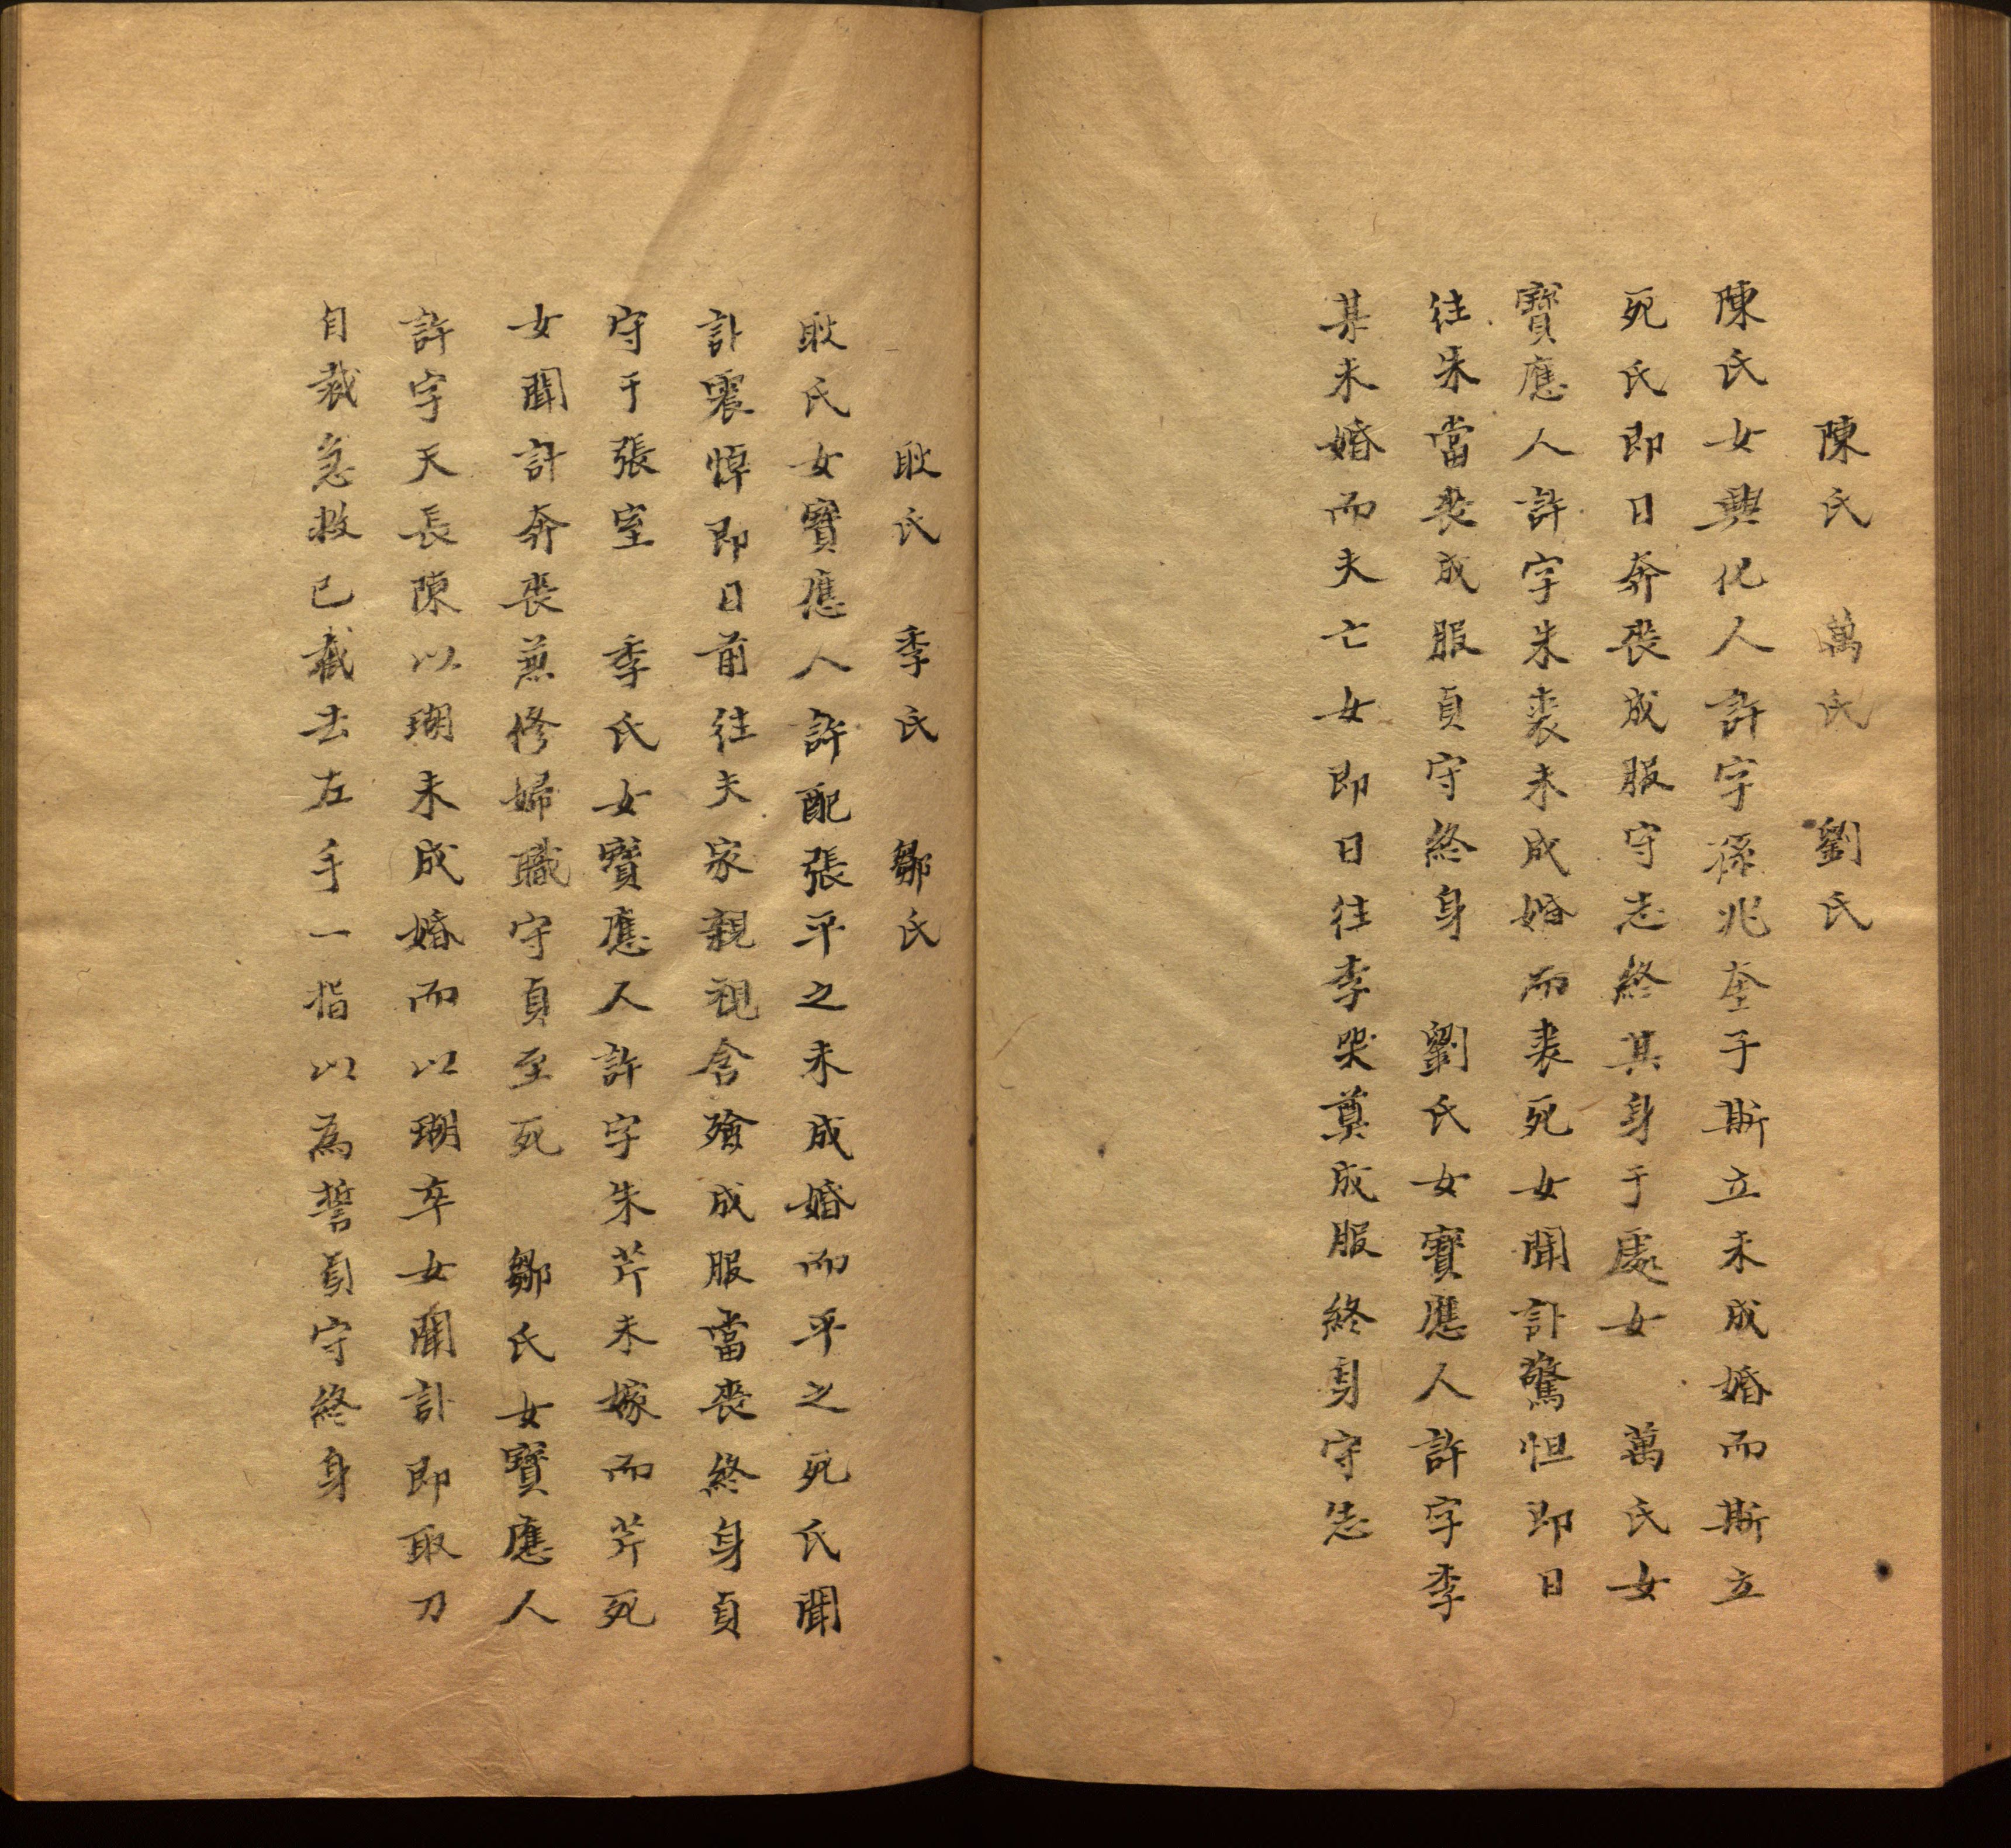 陳氏　萬氏　劉氏
陳氏女興化人許字孫兆奎子斯立未成婚而斯立
死氏即日奔喪成服守志終其身于處女　萬氏女
寶應人許字朱裘未成婚而裘死女聞訃驚怛即日
往朱當喪成服貞守終身　劉氏女寶應人許字李
某未婚而夫亡女即日往李哭奠成服終身守志
耿氏　季氏　鄒氏
耿氏女寶應人許配張平之未成婚而平之死氏聞
訃震悼即日前往夫家親視含殮成服當喪終身貞
守于張室　季氏女寶應人許字朱芹未嫁而芹死
女聞計奔喪蒸修婦職守貞至死　鄒氏女寶應人
許字天長陳以瑚未成婚而以瑚卒女聞訃即取刀
自裁急救已截去左手一指以為誓貞守終身